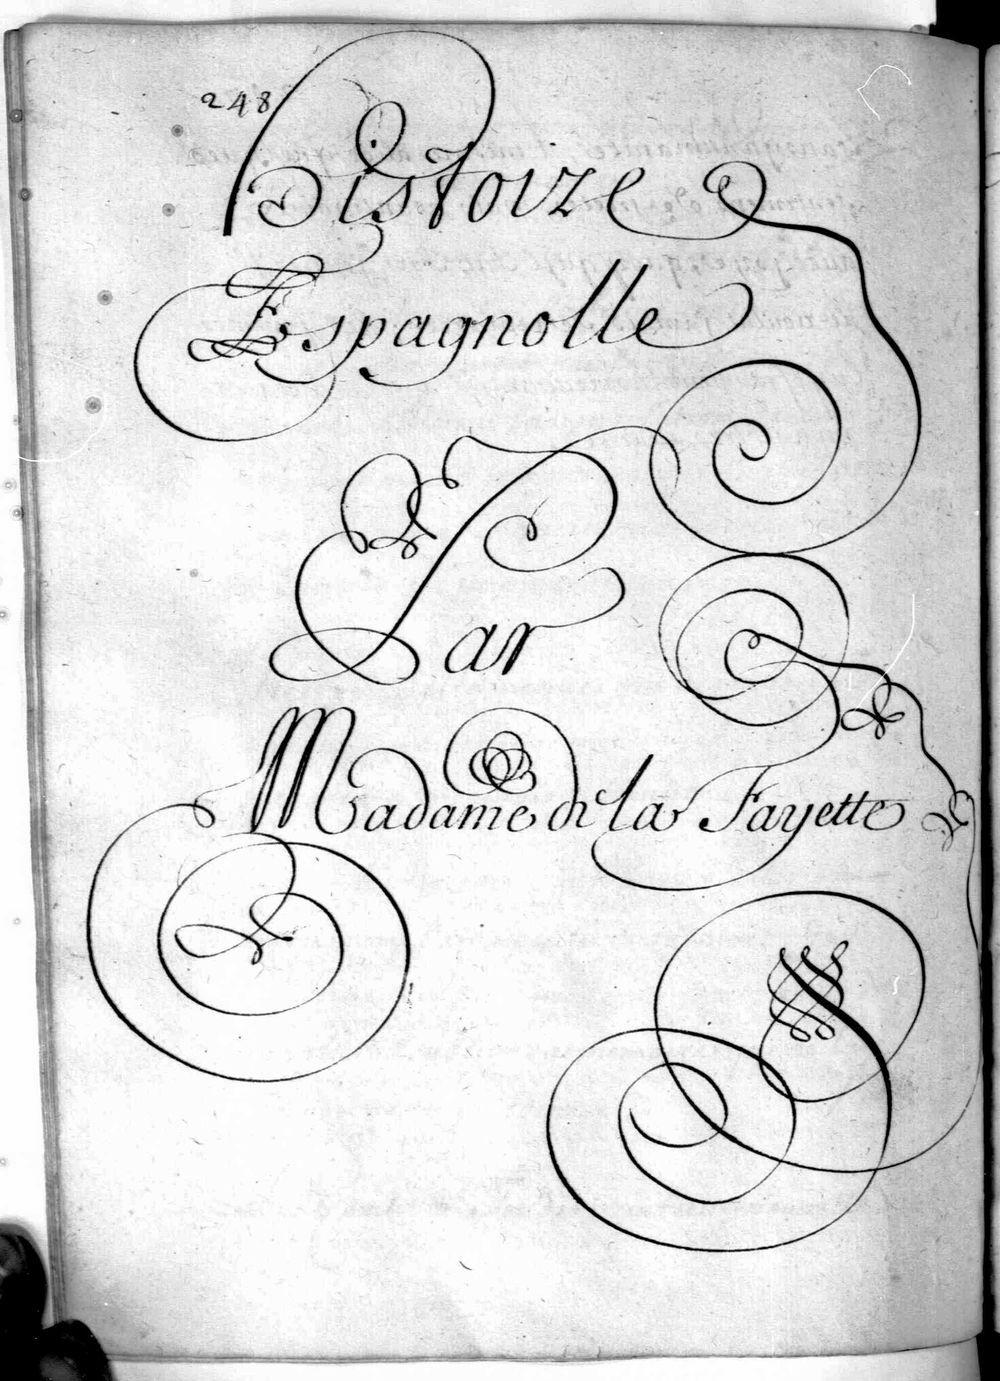 248
Histoire
Espagnolle
Par
Madame de la Fayette